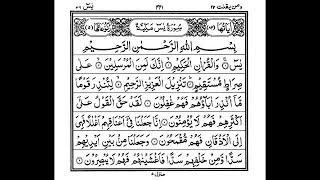 ومن يقنت ٢٢ يٰسٓ ٣٦
اٰیَاتُهَا سُوْرَةُ يٰسٓ مَكِّيَّةٌ رُكُوْعَاتُهَا
بِسْمِ اللّٰهِ الرَّحْمٰنِ الرَّحِيْمِ
يٰسٓ ۝ وَالْقُرْاٰنِ الْحَكِيْمِ ۝ اِنَّكَ لَمِنَ الْمُرْسَلِيْنَ ۝ عَلٰى
صِرَاطٍ مُّسْتَقِيْمٍ ۝ تَنْزِيْلَ الْعَزِيْزِ الرَّحِيْمِ ۝ لِتُنْذِرَ قَوْمًا
مَّآ اُنْذِرَ اٰبَآؤُهُمْ فَهُمْ غٰفِلُوْنَ ۝ لَقَدْ حَقَّ الْقَوْلُ عَلٰٓى
اَكْثَرِهِمْ فَهُمْ لَا يُؤْمِنُوْنَ ۝ اِنَّا جَعَلْنَا فِيْٓ اَعْنَاقِهِمْ اَغْلٰلًا فَهِيَ
اِلَى الْاَذْقَانِ فَهُمْ مُّقْمَحُوْنَ ۝ وَجَعَلْنَا مِنْۢ بَيْنِ اَيْدِيْهِمْ
سَدًّا وَّمِنْ خَلْفِهِمْ سَدًّا فَاَغْشَيْنٰهُمْ فَهُمْ لَا يُبْصِرُوْنَ ۝
منزل ٥